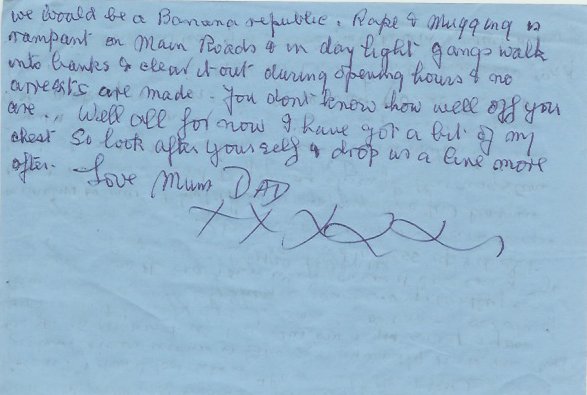 we would be a Banana republic. Rape & Mugging is
rampant on Main Roads & in day light gangs walk
into banks & clear it out during opening hours & no
arrests are made. You dont know how well off you
are.,, Well all for now I have got a bit of my
chest So look after yourself & drop us a line more
often. Love Mum DAD
XX XXX